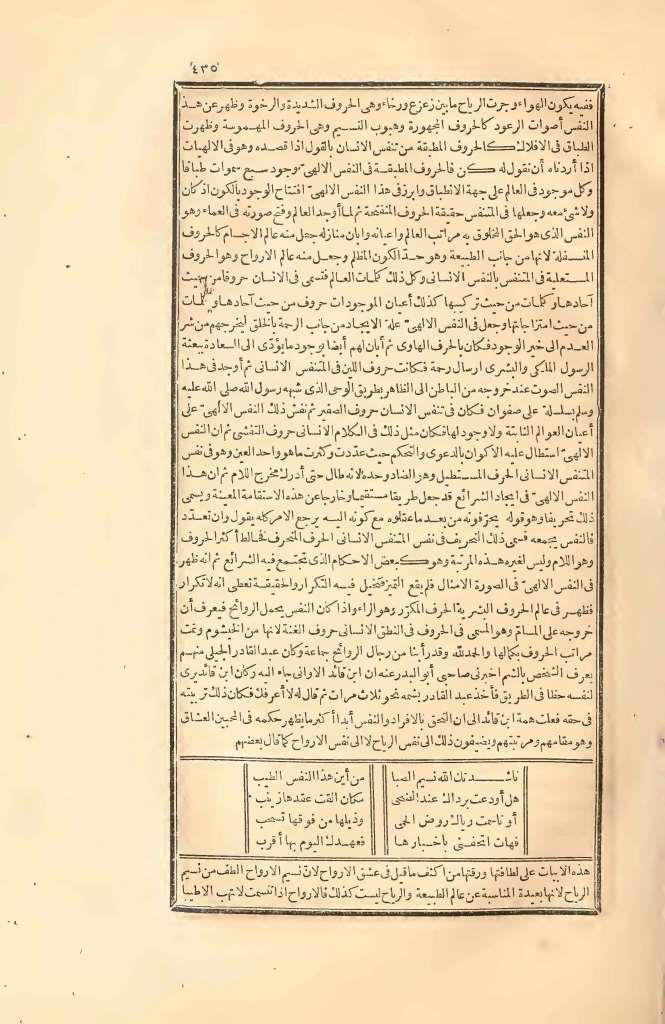 ٤٣٥
ففيه يكون الهواء وجرت الرياح ما بين زعزع ورخاء وهى الحروف الشديدة والرخوة وظهر عن هذا
النفس أصوات الرعود كالحروف المجهورة وهبوب النسيم وهى الحروف المهموسة وظهرت
الطباق فى الافلاك كالحروف المطبقة من تنفس الانسان بالقول اذا قصده وهو فى الالهيات
اذا أردناه أن نقول له كن فالحروف المطبقة فى النفس الالهىّ وجود سبع سموات طباقا
وكل موجود فى العالم على جهة الانطباق وابرز فى هذا النفس الالهىّ افتتاح الوجود بالكون اذ كان
ولا شئ معه وجعلها فى المتنفس حقيقة الحروف المنفتحة ثم لما أوجد العالم وفتح صورته فى العماء وهو
النفس الذى هو الحق المخلوق به مراتب العالم واعيانه وابان منازله جعل منه عالم الاجسام كالحروف
المنسفلة لانها من جانب الطبيعة وهو حدّ الكون المظلم وجعل منه عالم الارواح وهو الحروف
المستعلية فى المتنفس بالنفس الانسانى وكل ذلك كلمات العالم فتسمى فى الانسان حروفا من حيث
آحادها وكلمات من حيث تركيبها كذلك أعيان الموجودات حروف من حيث آحادها وكلمات
من حيث امتزاجاتها وجعل فى النفس الالهىّ علة الايجاد من جانب الرحمة بالخلق ليخرجهم من شر
العدم الى خير الوجود فكان بالحرف الهاوى ثم أبان لهم أيضا بوجود ما يؤدّى الى السعادة ببعثة
الرسول الملكى والبشرى ارسال رحمة فكانت حروف اللين فى المتنفس الانسانى ثم أوجد فى هذا
النفس الصوت عند خروجه من الباطن الى الظاهر بطريق الوحى الذى شبهه رسول الله صلى الله عليه
وسلم بسلسلة على صفوان فكان فى تنفس الانسان حروف الصفير ثم نفش ذلك النفس الالهىّ على
أعيان العوالم الثابتة ولا وجود لها فكان مثل ذلك فى الكلام الانسانى حروف التفشى ثم ان النفس
الالهىّ استطال عليه الاكوان بالدعوى والتحكم حيث عدّدت وكثرت ما هو واحد العين وهو فى نفس
المتنفس الانسانى الحرف المستطيل وهو الضاد وحده لانه طال حتى أدرك مخرج اللام ثم ان هذا
النفس الالهىّ فى ايجاد الشرائع قد جعل طريقا مستقيما وخارجا عن هذه الاستقامة المعينة ويسمى
ذلك تحريفا وهو قوله يحرّفونه من بعد ما عقلوه مع كونه اليه يرجع الامر كله يقول وان تعدّد
فالنفس يجمعه فسمى ذلك التحريف فى نفس المتنفس الانسانى الحرف المنحرف فخالط أكثر الحروف
وهو اللام وليس لغيره هذه المرتبة وهو كبعض الاحكام الذى تجتمع فيه الشرائع ثم انه ظهر
فى النفس الالهىّ فى الصورة الامثال فلم يقع التميز فتخيل فيه التكرار والحقيقة تعطى انه لا تكرار
فظهر فى عالم الحروف البشرية الحرف المكرّر وهو الراء واذا كان النفس يحمل الروائح فيعرف أن
خروجه على المسامّ وهو المسمى فى الحروف فى النطق الانسانى حروف الغنة لانها من الخيشوم وتمت
مراتب الحروف بكمالها والحمد لله وقد رأينا من رجال الروائح جماعة وكان عبد القادر الجيلى منهم
يعرف الشخص بالشم اخبرنى صاحبى أبو البدر عنه ان ابن قائد الاوانى جاء اليه وكان ابن قائد يرى
لنفسه حظا فى الطريق فأخذ عبد القادر يشمه نحو ثلاث مرات ثم قال له لا أعرفك فكان ذلك تربيته
فى حقه فعلت همة ابن قائد الى ان التحق بالافراد والنفس أبدا أكثر ما يظهر حكمه فى المحبين العشاق
وهو مقامهم ومرتبتهم ويضيفون ذلك الى نفس الرياح لا الى نفس الارواح كما قال بعضهم
ناشدتك الله نسيم الصبا من أين هذا النفس الطيب
هل أودعت برداك عند الضحى مكان القت عقدها زينب
أو ناسمت رياك روض الحمى وذيلها من فوقها تسحب
فهات اتحفنى بأخبارها فعهدك اليوم بها أقرب
هذه الابيات على لطافتها ورقتها من اكثف ما قيل فى عشق الارواح لانّ نسيم الارواح الطف من نسيم
الرياح لانها بعيدة المناسبة عن عالم الطبيعة والرياح ليست كذلك فالارواح اذا تنسمت لا تهب الا طيبا